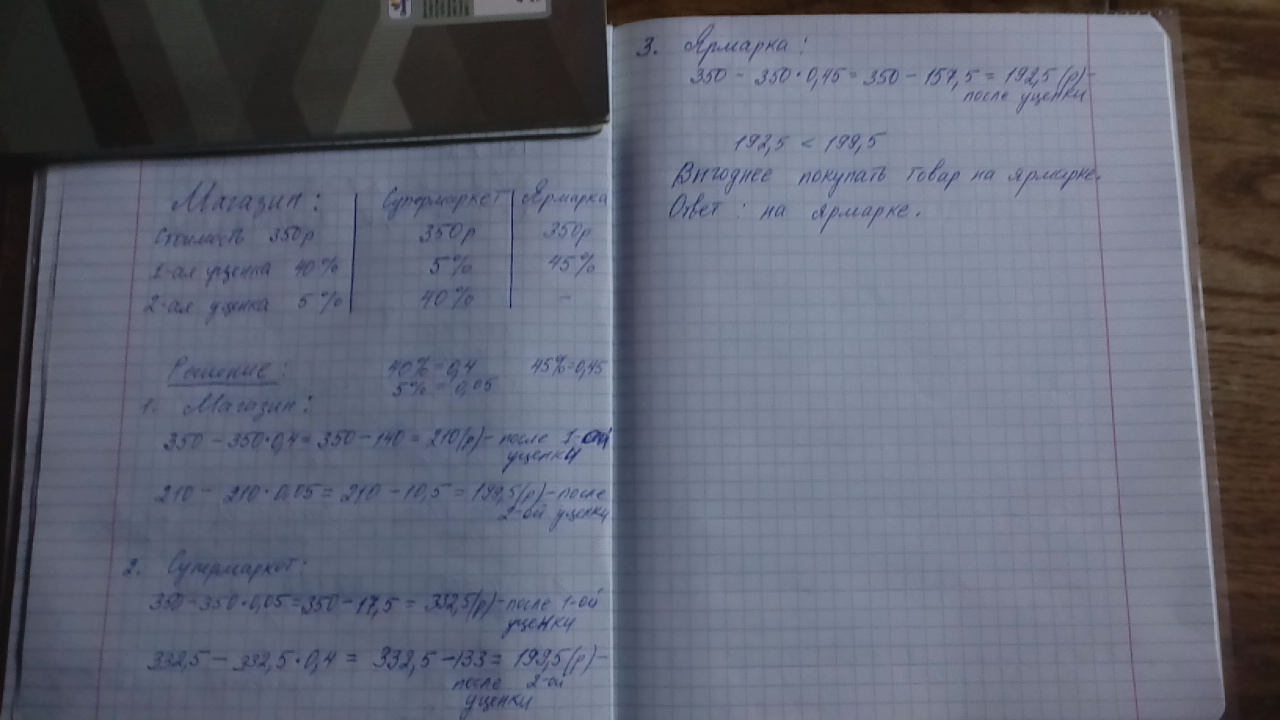 Магазин: Супермаркет Ярмарка
Стоимость 350р 350р 350р
1-ая уценка 40% 5% 45%
2-ая уценка 5% 40% -
Решение: 40% = 0,4 45% = 0,45
5% = 0,05
1. Магазин:
350 - 350·0,4 = 350 - 140 = 210(р) - после 1-ой
уценки
210 - 210·0,05 = 210 - 10,5 = 199,5(р) - после
2-ой уценки
2. Супермаркет:
350 - 350·0,05 = 350 - 17,5 = 332,5(р) - после 1-ой
уценки
332,5 - 332,5·0,4 = 332,5 - 133 = 199,5(р) -
после 2-ой
уценки
3. Ярмарка:
350 - 350·0,45 = 350 - 157,5 = 192,5(р) -
после уценки
192,5 < 199,5
Выгоднее покупать товар на ярмарке.
Ответ: на ярмарке.